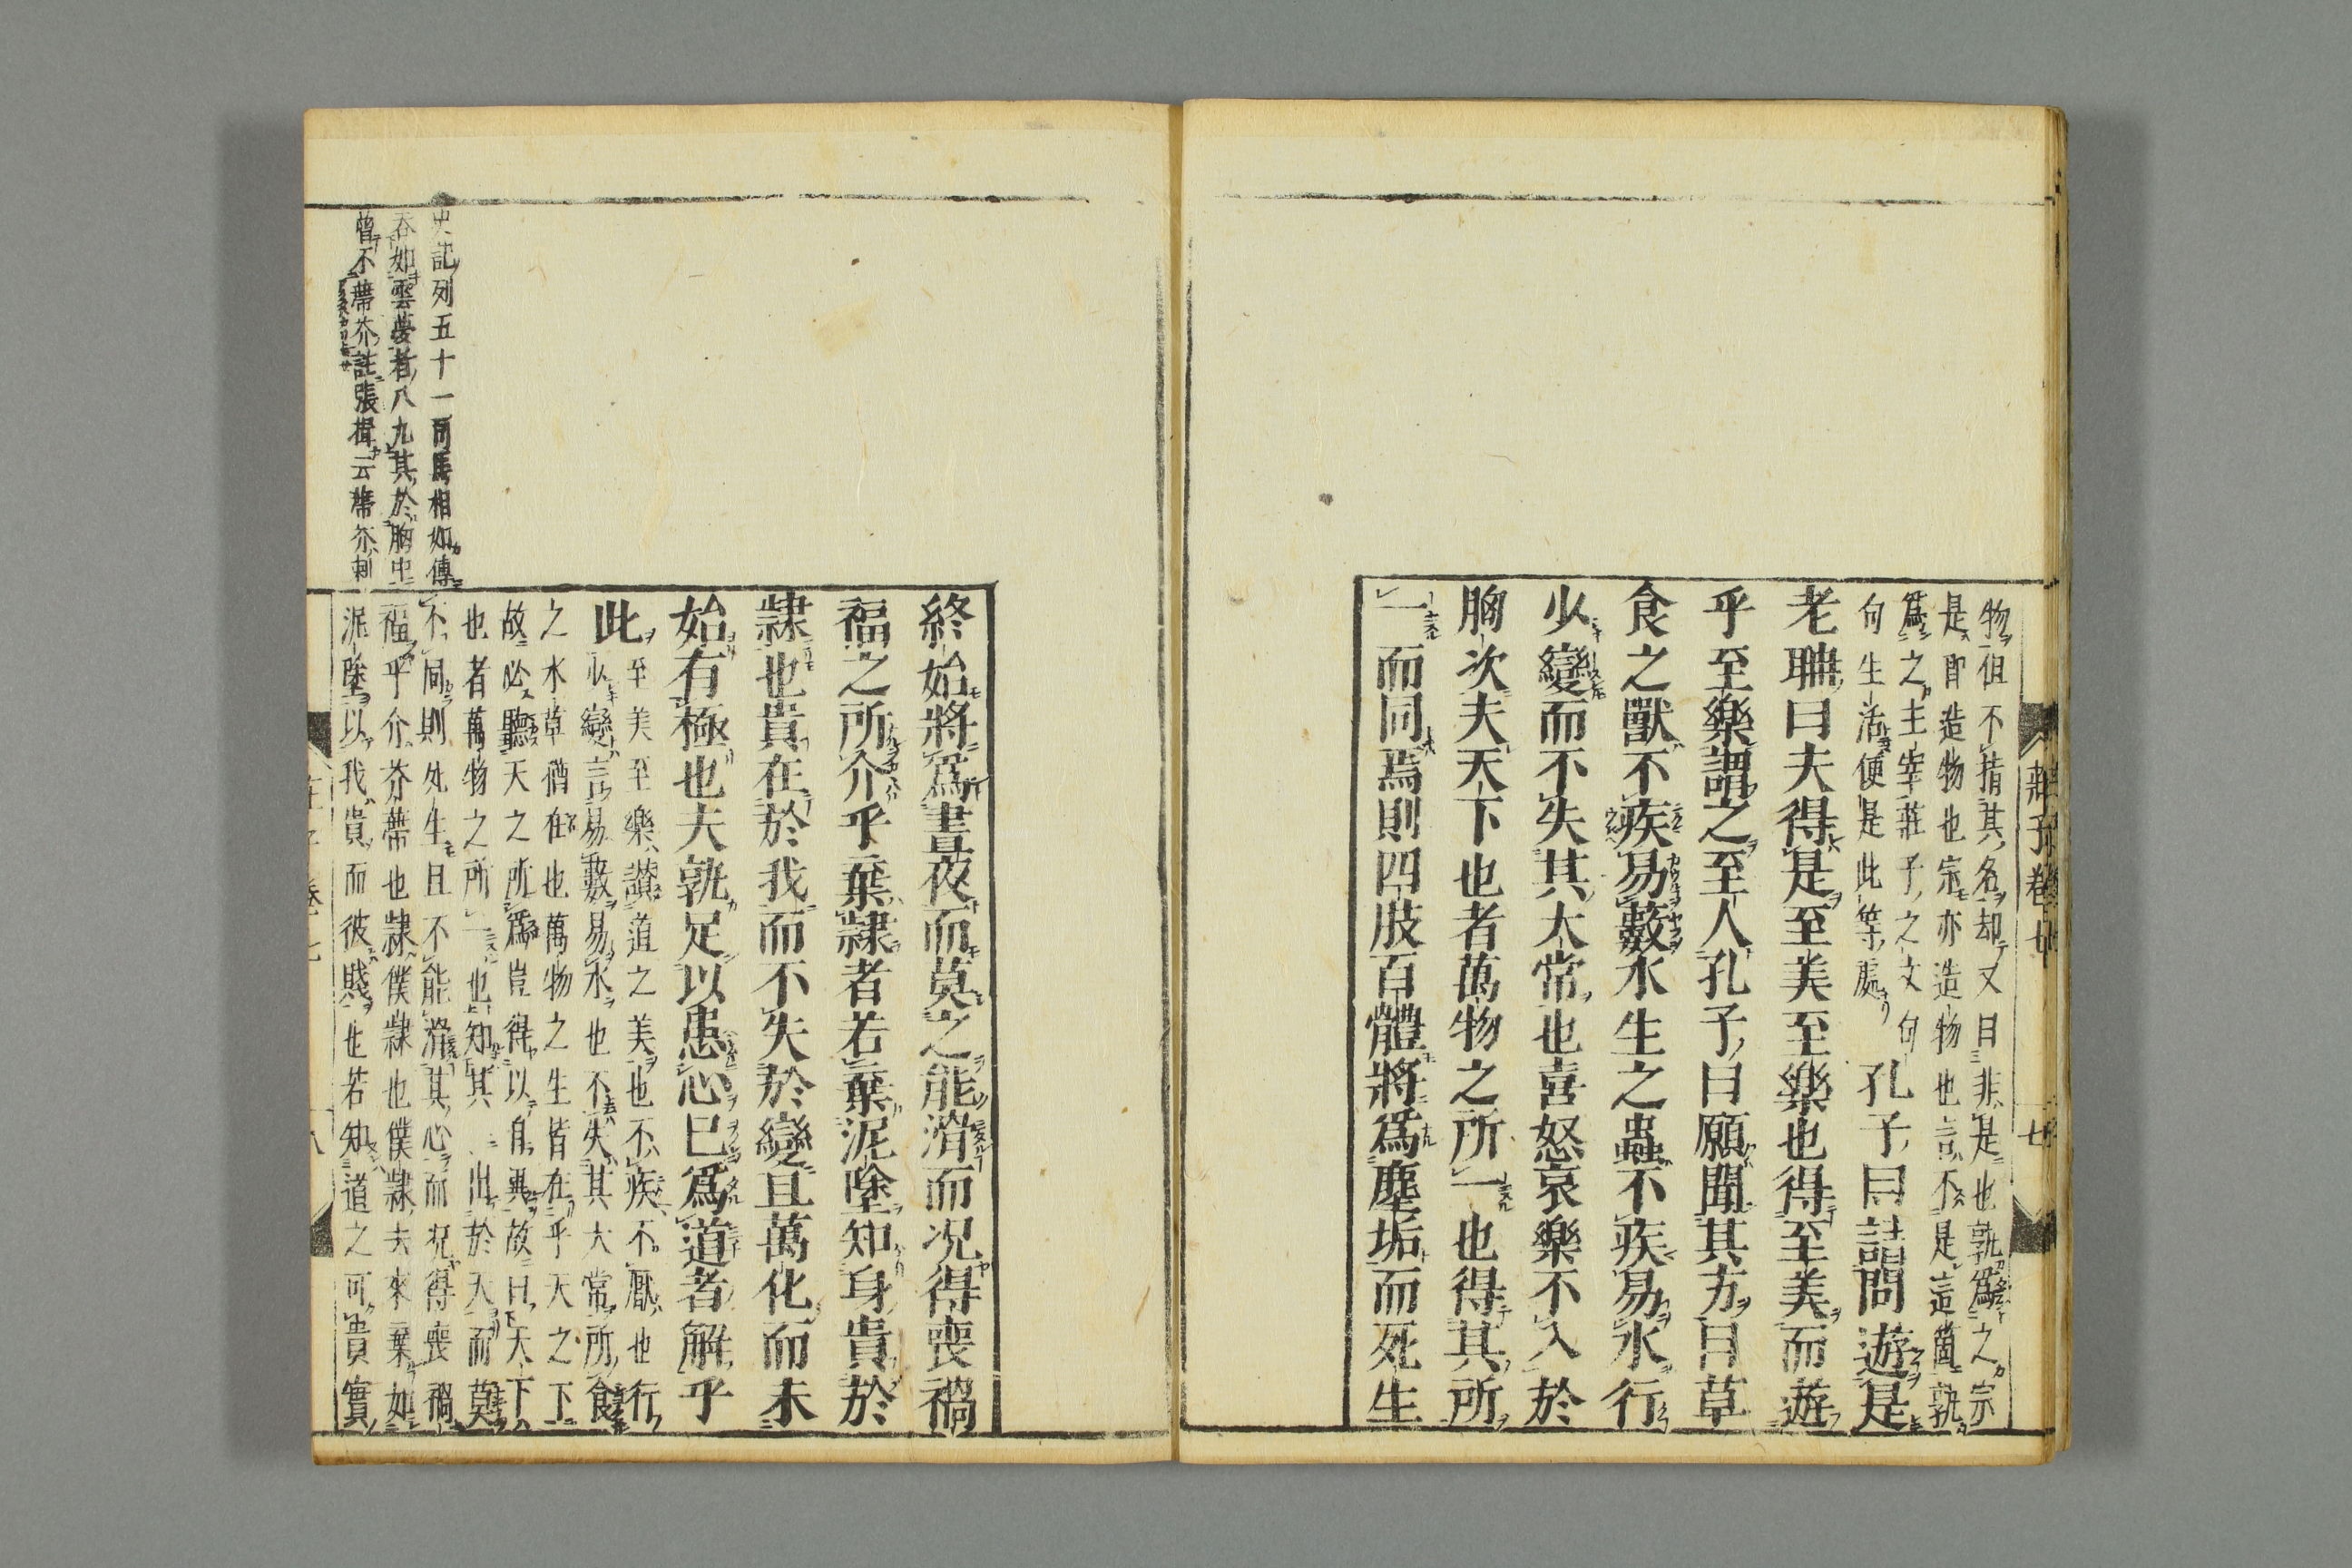 物但不指其名却又曰非是也孰爲之宗
是即造物也宗亦造物也言不是這箇孰
爲之主宰莊子之文句
句生活便是此等處孔子曰請問遊是
老聃曰夫得是至美至樂也得至美而遊
乎至樂謂之至人孔子曰願聞其方曰草
食之獸不疾易藪水生之蟲不疾易水行
少變而不失其大常也喜怒哀樂不入於
胸次夫天下也者萬物之所一也得其所
一而同焉則四肢百體將爲塵垢而死生
莊子卷七
七
終始將爲晝夜而莫之能滑而况得喪禍
福之所介乎棄隷者若棄泥塗知身貴於
隷也貴在於我而不失於變且萬化而未
始有極也夫孰足以患心已爲道者解乎
此至美至樂讃道之美也不疾不厭也行
少變言易藪易水也不失其大常所食
之水草猶在也萬物之生皆在乎天之下
故必聽天之所爲豈得以自異故曰天下
也者萬物之所一也知其出於天而莫
不同則死生且不能滑其心而况得喪禍
福乎介芥蔕也隷僕隷也僕隷去來棄如
泥塗以我貴而彼賤也若知道之可貴實
史記列五十一司馬相如傳
吞如雲夢者八九其於胸中
曽不蔕芥註張揖云蔕芥刺